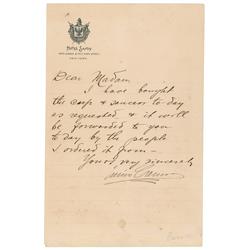 HOTEL SAVOY
NEW YORK
Dear Madam
I have bought
the cup & saucer to day
as requested & it will
be forwarded to you
to day by the people
I ordered it from –
Yours very sincerely